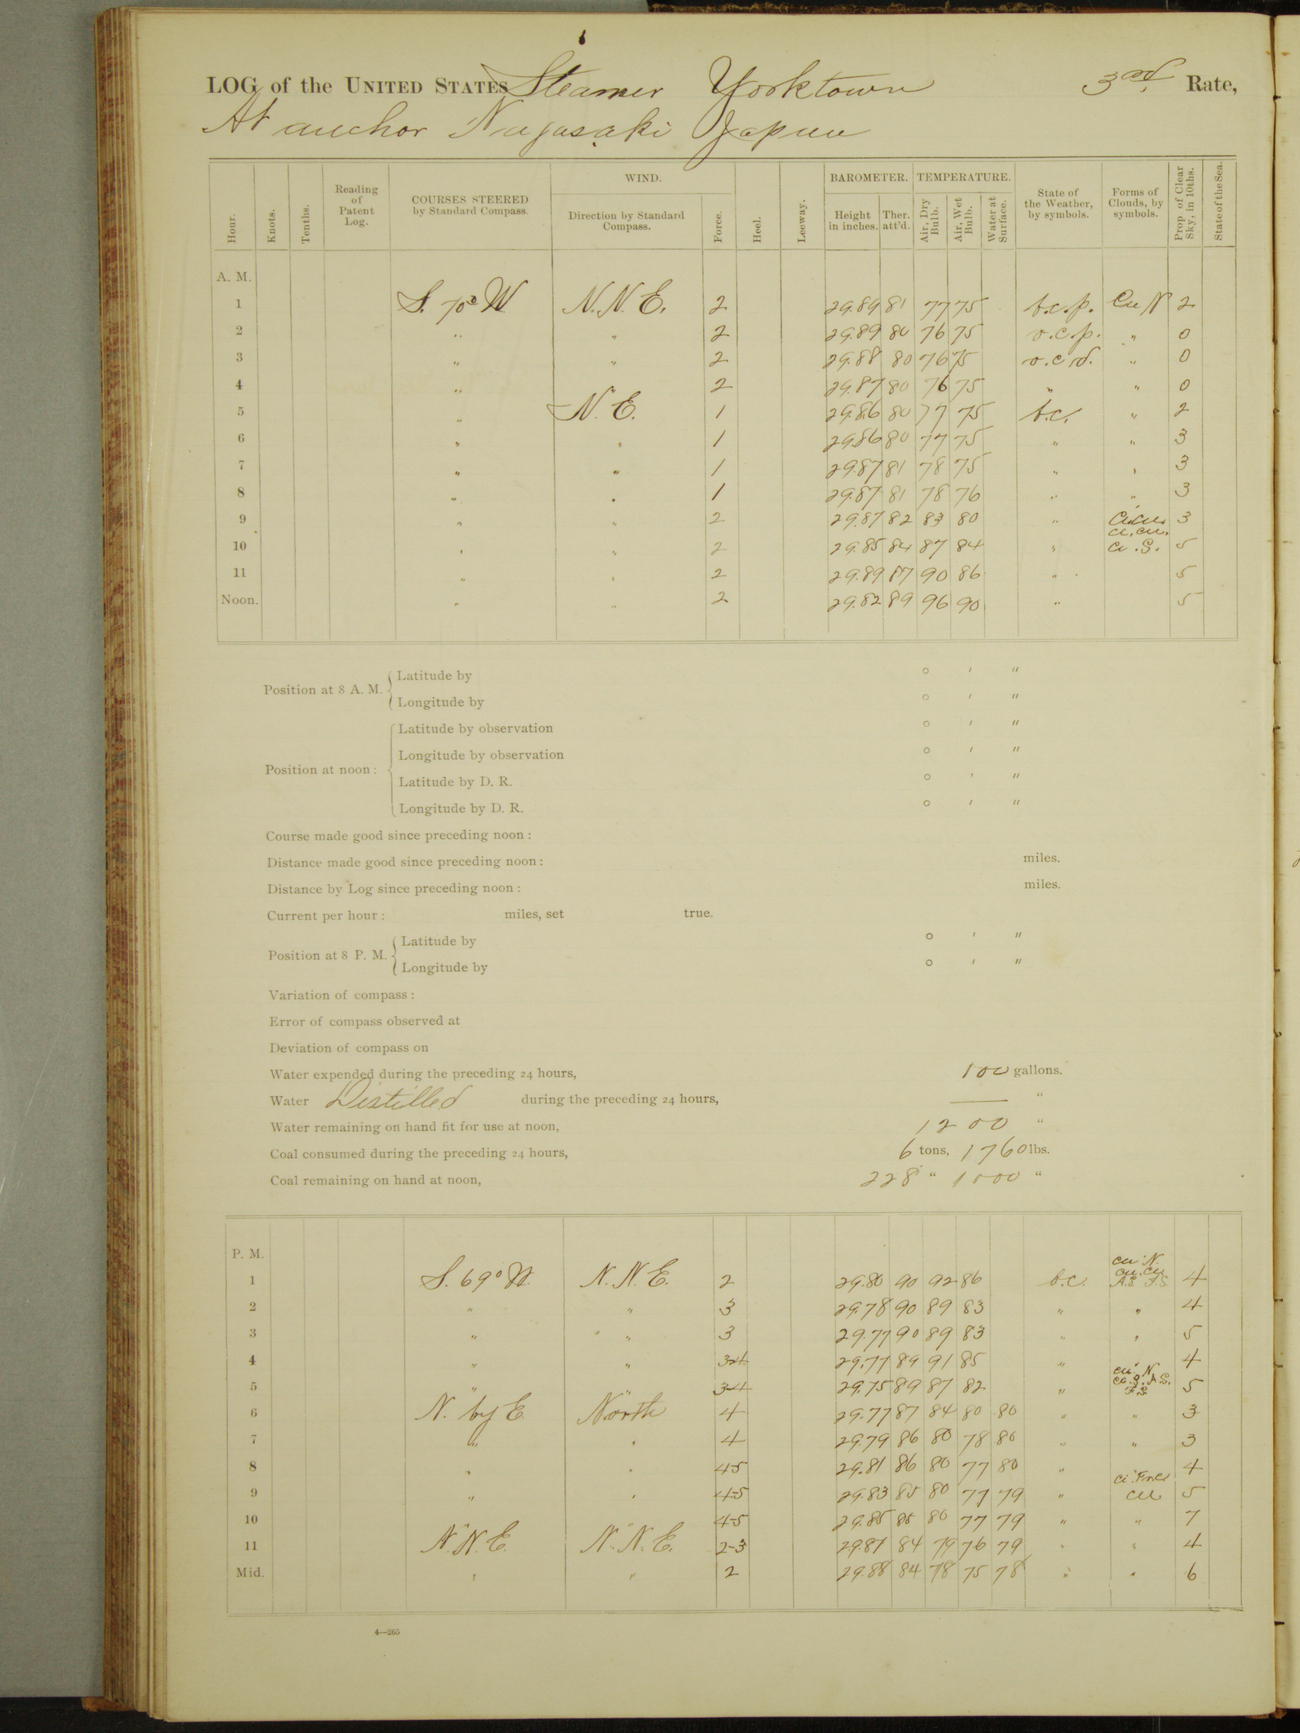 LOG of the UNITED STATES Steamer Yorktown 3rd Rate,
At anchor Nagasaki Japan
Hour. Knots. Tenths. Reading of Patent Log. COURSES STEERED by Standard Compass. WIND. Direction by Standard Compass. Force. Heel. Leeway. BAROMETER. Height in inches. Ther. att'd. TEMPERATURE. Air, Dry Bulb. Air, Wet Bulb. Water at Surface. State of the Weather, by symbols. Forms of Clouds, by symbols. Prop. of Clear Sky, in 10ths. State of the Sea.
A. M.
1 S. 70° W N.N.E. 2 29.89 81 77 75 b.c.p. Cu N 2
2 " " 2 29.89 80 76 75 o.c.p. " 0
3 " " 2 29.88 80 76 75 o.c.d. " 0
4 " " 2 29.87 80 76 75 " " 0
5 " N.E. 1 29.86 80 77 75 b.c. " 2
6 " " 1 29.86 80 77 75 " " 3
7 " " 1 29.87 81 78 75 " " 3
8 " " 1 29.87 81 78 76 " " 3
9 " " 2 29.87 82 83 80 " Ci.cu. 3
10 " " 2 29.85 84 87 84 " ci.cu. ci.S. 5
11 " " 2 29.89 87 90 86 " 5
Noon. " " 2 29.82 89 96 90 " 5
Position at 8 A. M. { Latitude by ° ' "
Longitude by ° ' "
Position at noon: { Latitude by observation ° ' "
Longitude by observation ° ' "
Latitude by D. R. ° ' "
Longitude by D. R. ° ' "
Course made good since preceding noon:
Distance made good since preceding noon: miles.
Distance by Log since preceding noon: miles.
Current per hour: miles, set true.
Position at 8 P. M. { Latitude by ° ' "
Longitude by ° ' "
Variation of compass:
Error of compass observed at
Deviation of compass on
Water expended during the preceding 24 hours, 100 gallons.
Water Distilled during the preceding 24 hours, —— "
Water remaining on hand fit for use at noon, 1200 "
Coal consumed during the preceding 24 hours, 6 tons, 1760 lbs.
Coal remaining on hand at noon, 228 " 1000 "
P. M.
1 S. 69° W. N.N.E. 2 29.80 90 92 86 b.c. cu N. 4
2 " " 3 29.78 90 89 83 " " 4
3 " " " 3 29.77 90 89 83 " " 5
4 " " 3-4 29.77 89 91 85 " 4
5 " " 3-4 29.75 89 87 82 " 5
6 N. by E. North 4 29.77 87 84 80 80 " " 3
7 " " 4 29.79 86 80 78 80 " " 3
8 " " 4-5 29.81 86 80 77 80 " 4
9 " " 4-5 29.83 85 80 77 79 " cu 5
10 " " 4-5 29.85 85 80 77 79 " " 7
11 N.N.E. N.N.E. 2-3 29.87 84 79 76 79 " " 4
Mid. " " 2 29.88 84 78 75 78 " " 6
4—265